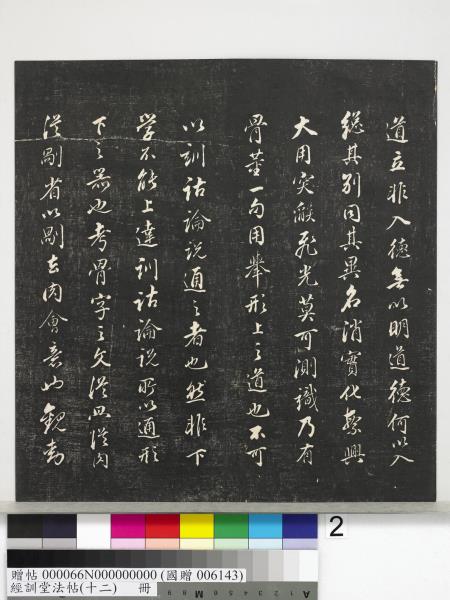 道立非入德無以明道德何以入
總其別同其異名消實化無興
大用突發飛光莫可測識乃有
骨董一句用舉形上之道也不可
以訓詁論說通之者也然非下
學不能上達訓詁論說所以通形
下之器也考骨字之文從冎從肉
從剮省以剮去肉會意也觀書
2
贈帖 000066N000000000 (國贈 006143)
經訓堂法帖(十二) 冊